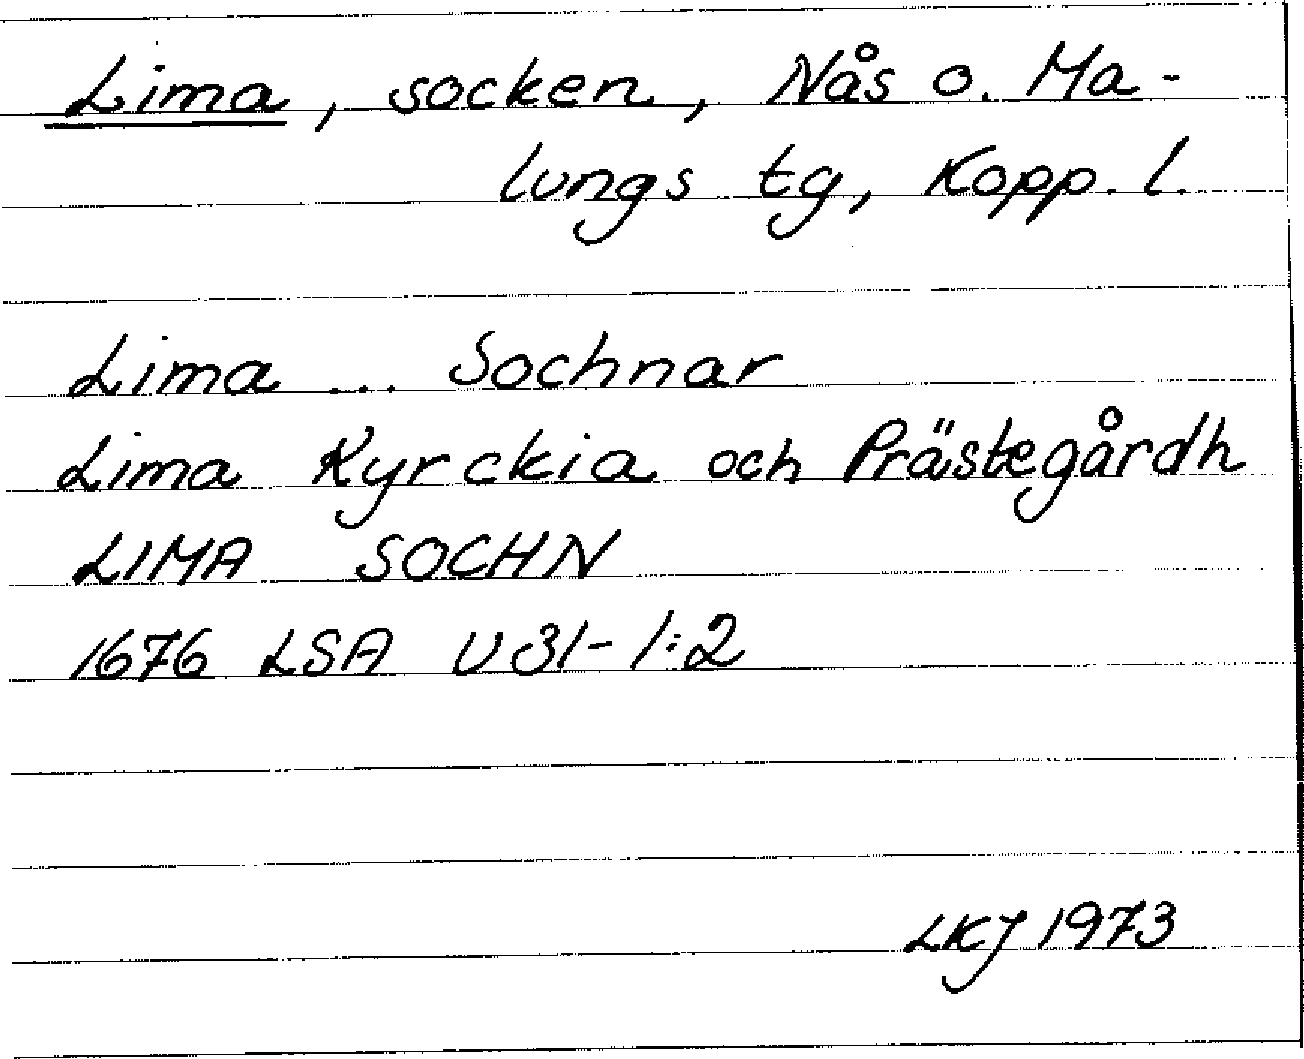 Lima, socken, Nås o. Ma-
lungs tg, Kopp. l.
Lima ... Sochnar
Lima Kyrckia och Prästegårdh
LIMA SOCHN
1676 LSA U31-1:2
LKJ 1973